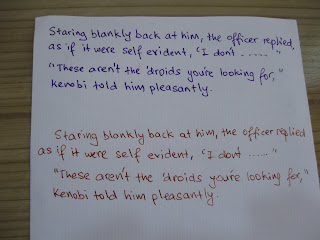 Staring blankly back at him, the officer replied,
as if it were self evident, "I don't ......."
"These aren't the 'droids you're looking for,"
Kenobi told him pleasantly.
Staring blankly back at him, the officer replied
as if it were self evident, "I don't ......"
"These aren't the 'droids you're looking for,"
Kenobi told him pleasantly.